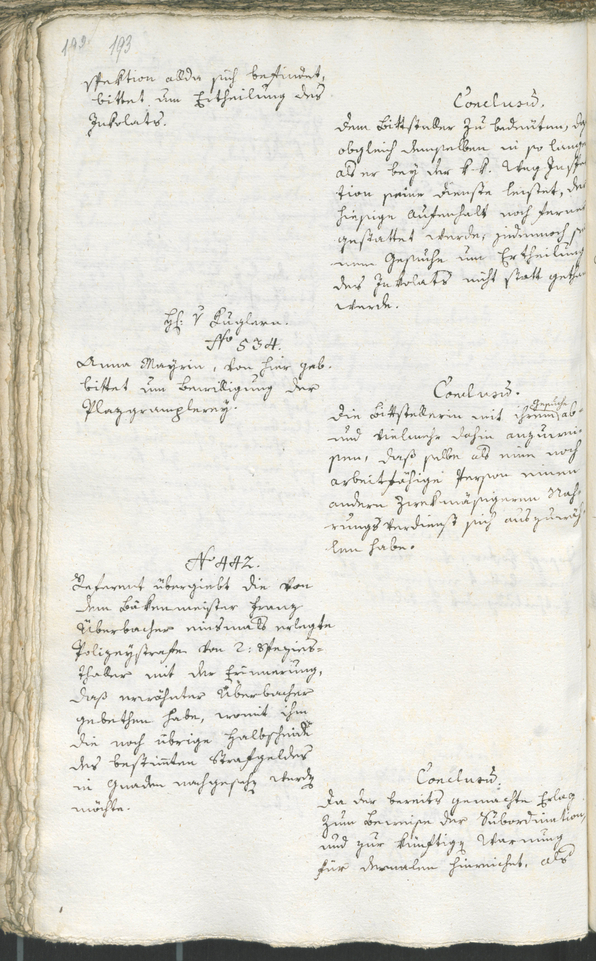 192. 193
spektion allda sich befindet,
bittet um Ertheilung des
Inkolats.
Conclusũ.
dem Bittsteller zu bedeuten, daß
obgleich demselben in so lange
als er bey der k. k. Weg Inspe
tion seine Dienste leistet, der
hiesige Aufenthalt noch ferner
gestattet werde, jedennoch se
nem Gesuche um Ertheilung
des Inkolats nicht statt gethan
werde.
Hr: v Kuglern.
Nro 534.
Anna Mayrin, von hier geb.
bittet um Bewilligung der
Plazgramplerey.
Conclusũ.
die Bittstellerin mit ihrem Gesuche ab
und vielmehr dahin anzuwei
sen, daß selbe als eine noch
arbeitsfähige Person einen
andern zwekmäsigeren Nah
rungsverdienst sich auszuwäh
len habe.
Nro 442.
Referent übergiebt die von
dem Bäkenmeister Franz
Überbacher einsmals erlegte
Polizeystrafe von 2: Spezies-
thaler mit der Erinnerung,
daß erwähnter Überbacher
gebethen habe, womit ihm
die noch übrige Halbscheide
des bestimten Strafgeldes
in Gnaden nachgesehẽ werdẽ
möchte.
Conclusũ.
Da der bereits gemachte Erlag
zum Beweise der Subordination,
und zur künftigẽ Warnung
für dermalen hinreichet, als